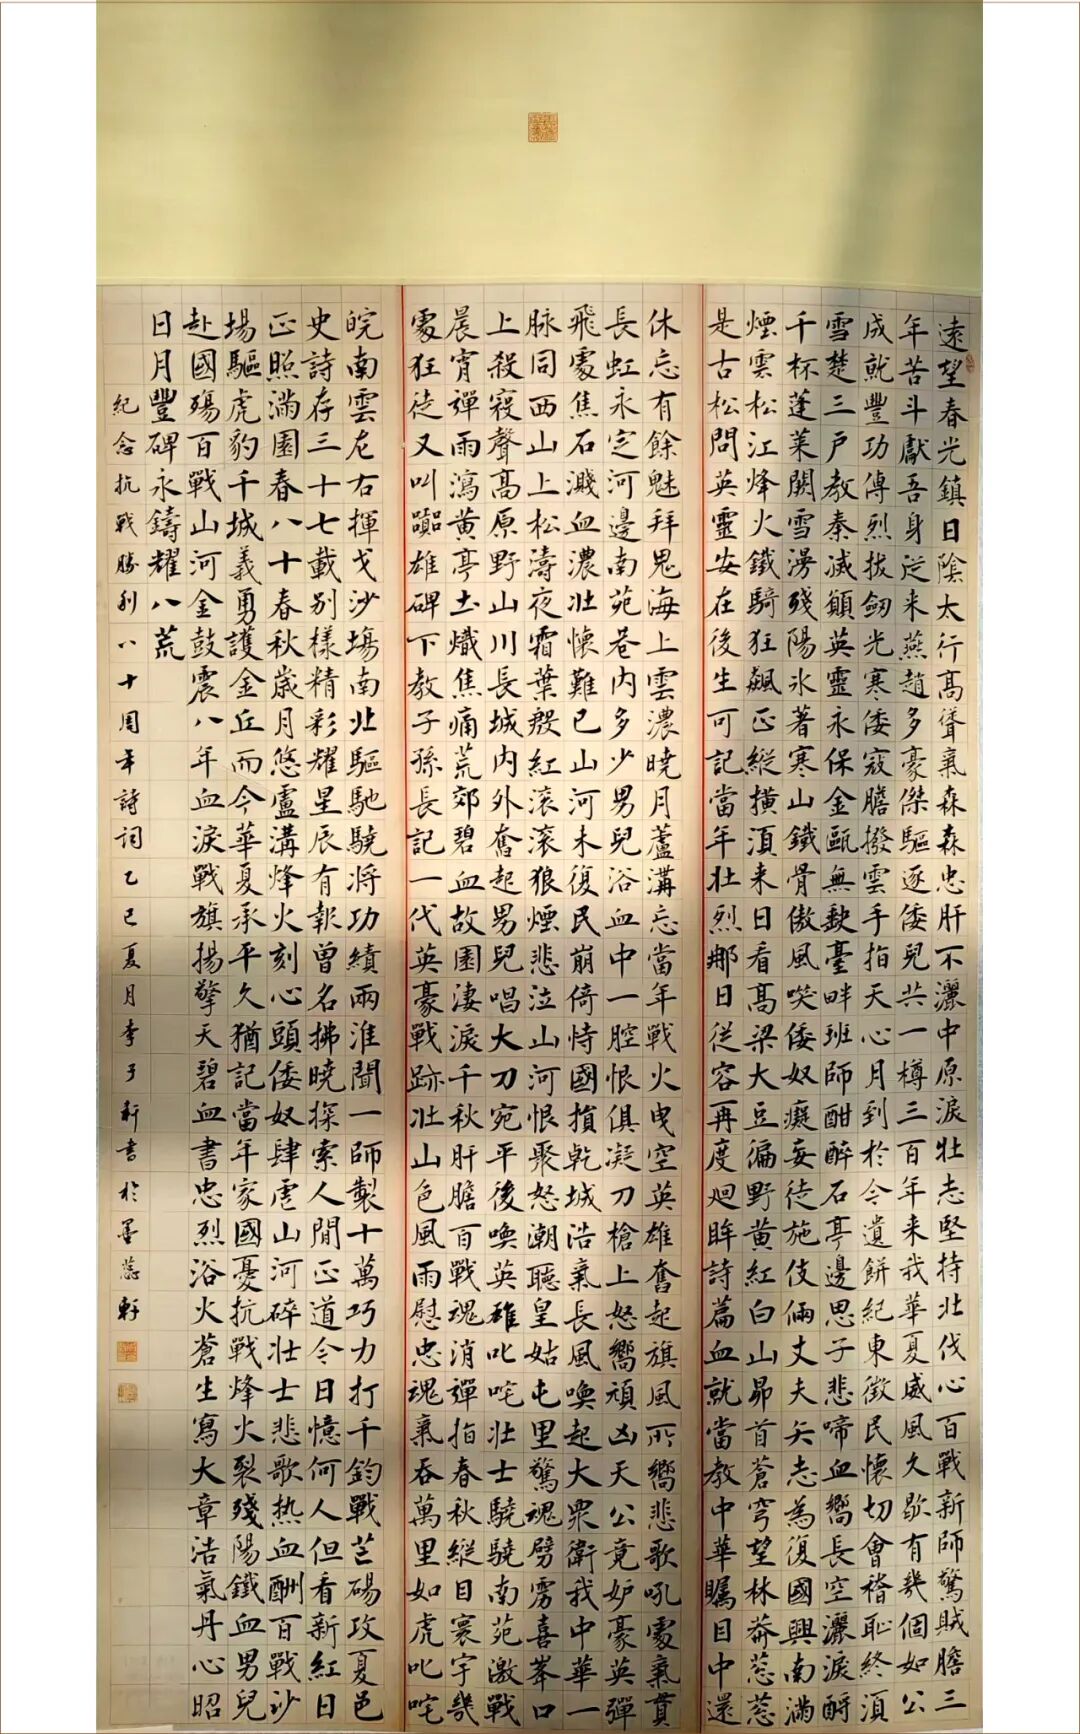 遠望春光鎮日陰太行高聳氣森森忠肝不灑中原淚壯志堅持北伐心百戰新師驚賊膽三
年苦斗獻吾身從来燕趙多豪傑驅逐倭兒共一樽三百年来我華夏威風久歇有幾個如公
成就豐功傳烈拔劒光寒倭寇膽撥雲手指天心月到於今遺餅紀東徵民懷切會稽恥終湏
雪楚三戶教秦滅願英靈永保金甌無缺臺畔班師酣醉石亭邊思子悲啼血嚮長空灑淚酹
千杯蓬萊闕雪澇殘陽氷著寒山鐵骨傲風唉倭奴癡妄徒施伎倆丈夫矢志為復國興南滿
煙雲松江烽火鐵騎狂飆正縱横湏来日看高梁大豆徧野黄紅白山昴首蒼穹望林莽蔥蔥
是古松問英靈安在後生可記當年壯烈那日従容再度迴眸詩篇血就當教中華矚目中還
休忘有餘魅拜鬼海上雲濃曉月蘆溝忘當年戰火曳空英雄奮起旗風所嚮悲歌吼處氣貫
長虹永定河邊南苑巷内多少男兒浴血中一腔恨俱凝刀槍上怒嚮頑凶天公竟妒豪英彈
飛處焦石濺血濃壯懷難已山河未復民崩倚恃國損乾城浩氣長風喚起大衆衛我中華一
脉同西山上松濤夜霜葉殷紅滚滚狼煙悲泣山河恨聚怒潮聴皇姑屯里驚魂劈雳喜峯口
上殺寇聲高原野山川長城内外奮起男兒唱大刀宛平後喚英雄叱咤壯士驍驍南苑激戰
晨宵彈雨瀉黄亭土熾焦痛荒郊碧血故園淒淚千秋肝膽百戰魂消彈指春秋縱目寰宇幾
處狂徒又叫囂雄碑下教子孫長記一代英豪戰跡壯山色風雨慰忠魂氣吞萬里如虎叱咤
皖南雲左右揮戈沙場南北驅馳驍将功績兩淮聞一師製十萬巧力打千鈞戰芒碭攻夏邑
史詩存三十七載别樣精彩耀星辰有報曾名拂曉探索人間正道今日憶何人但看新紅日
正照滿園春八十春秋歲月悠盧溝烽火刻心頭倭奴肆虐山河碎壮士悲歌热血酬百戰沙
場驅虎豹千城義勇護金丘而今華夏承平久猶記當年家國憂抗戰烽火裂殘陽鐵血男兒
赴國殤百戰山河金鼓震八年血淚戰旗揚擎天碧血書忠烈浴火蒼生寫大章浩氣丹心昭
日月豐碑永鑄耀八荒
紀念抗戰勝利八十周年詩詞乙巳夏月李子軒書於墨蕊軒